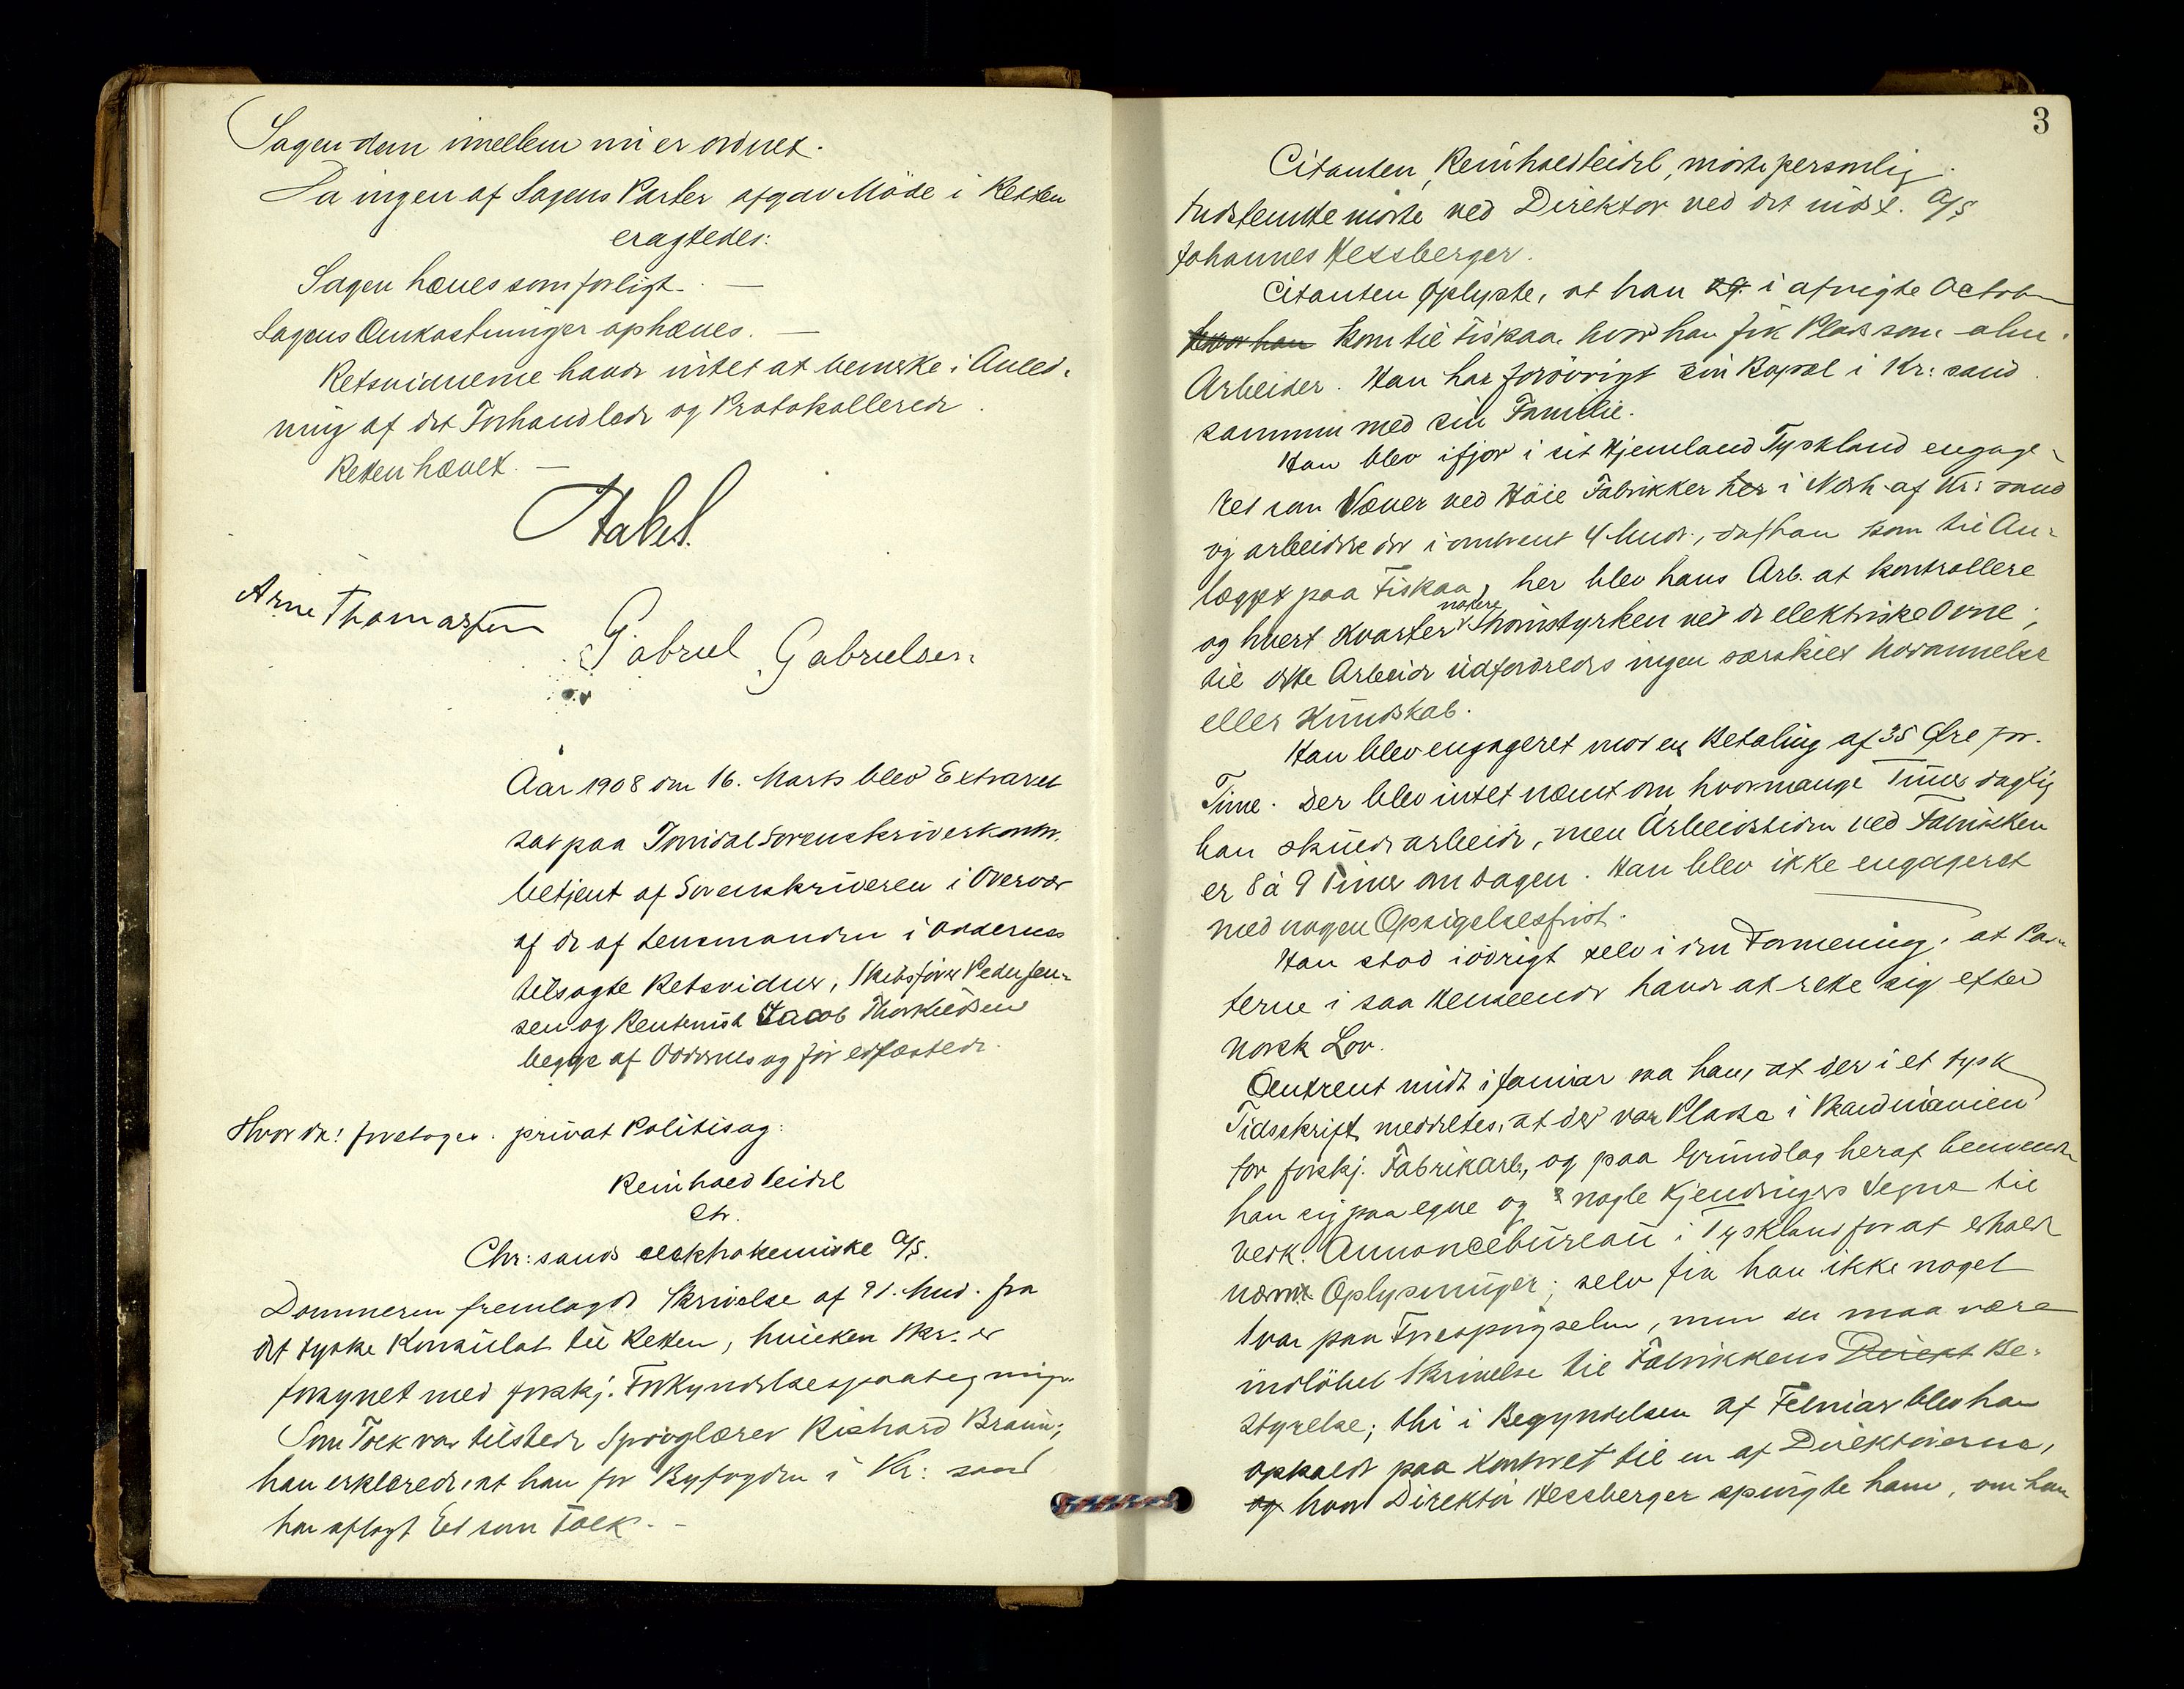 Sagen dem imellem nu er ordnet.
Da ingen af Sagens Parter afgav Möde i Retten
eragtedes:
Sagen hæves som forligt. —
Sagens Omkostninger ophæves. —
Retsvidnerne havde intet at bemerke i Anled-
ning af det Forhandlede og Protokollerede.
Retten hævet. —
Stabel.
Arne Thomassen
Gabriel Gabrielsen
Aar 1908 den 16. Marts blev Extraret
sat paa Torridal Sorenskriverkontor,
betjent af Sorenskriveren i Overvær
af de af Lensmanden i Oddernes
tilsagte Retsvidner, Skibsförer Pedersen
sen og Rentenist Jacob Thorkildsen
begge af Oddernes og för edfæstede.
Hvor da: foretoges privat Politisag:
Reinhold Seidel
ctr.
Chr:sands elektrokemiske A/S.
Dommeren fremlagde Skrivelse af 9 d. Mnd. fra
det tyske Konsulat til Retten, hvilken Skr. er
forsynet med forskj. Forkyndelsespaategning.
Som Tolk var tilstede Sproglærer Richard Braun;
han erklærede, at han for Byfogden i Kr:sand
har aflagt Ed som Tolk. —
3
Citanten, Reinhold Seidel, mötte personlig.
Indstemte mötte ved Direktör ved det indst. A/S
Johannes Hessberger.
Citanten Oplyste, at han og i afvigte October
hvor han kom til Fiskaa, hvor han fik Plads som alm.
Arbeider. Han har forövrigt sin Bopæl i Kr:sand
sammen med sin Familie.
Han blev ifjor i sit Hjemland Tyskland engage-
ret som Væver ved Höie Fabrikker her i Nærh. af Kr:sand
og arbeidede der i omtrent 4 Mndr., da han kom til An-
lægget paa Fiskaa, her blev hans Arb. at kontrollere
og hvert Kvarter notere Strömstyrken ved de elektriske Ovne;
til dette Arbeide udfordredes ingen særskilt Uddannelse
eller Kundskab.
Han blev engageret mod en Betaling af 35 Øre pr.
Time. Der blev intet nævnt om hvormange Timer daglig
han skulde arbeide, men Arbeidstiden ved Fabrikken
er 8 à 9 Timer om dagen. Han blev ikke engageret
med nogen Opsigelsesfrist.
Han stod iövrigt selv i den Formening, at Par-
terne i saa Henseende havde at rette sig efter
norsk Lov.
Omtrent midt i Januar saa han, at der i et tysk
Tidsskrift meddeltes, at der var Pladse i Skandinavien
for forskj. Fabrikarb., og paa Grundlag heraf henvendte
han sig paa egne og nogle Kjendinges Vegne til
vedk. Annoncebureau i Tyskland for at erholde
nærm. Oplysninger; selv fik han ikke noget
Svar paa Forespörgselen, men der maa være
indlöbet Skrivelse til Fabrikkens Direkt Be-
styrelse; thi i Begyndelsen af Februar blev han
opkaldt paa Kontoret til en af Direktörerne,
og hvor Direktör Hessberger spurgte ham, om han